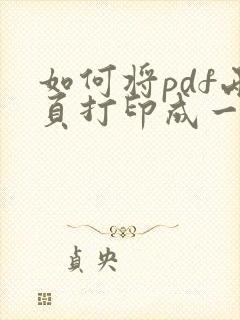 如何将pdf两
页打印成一
贞央